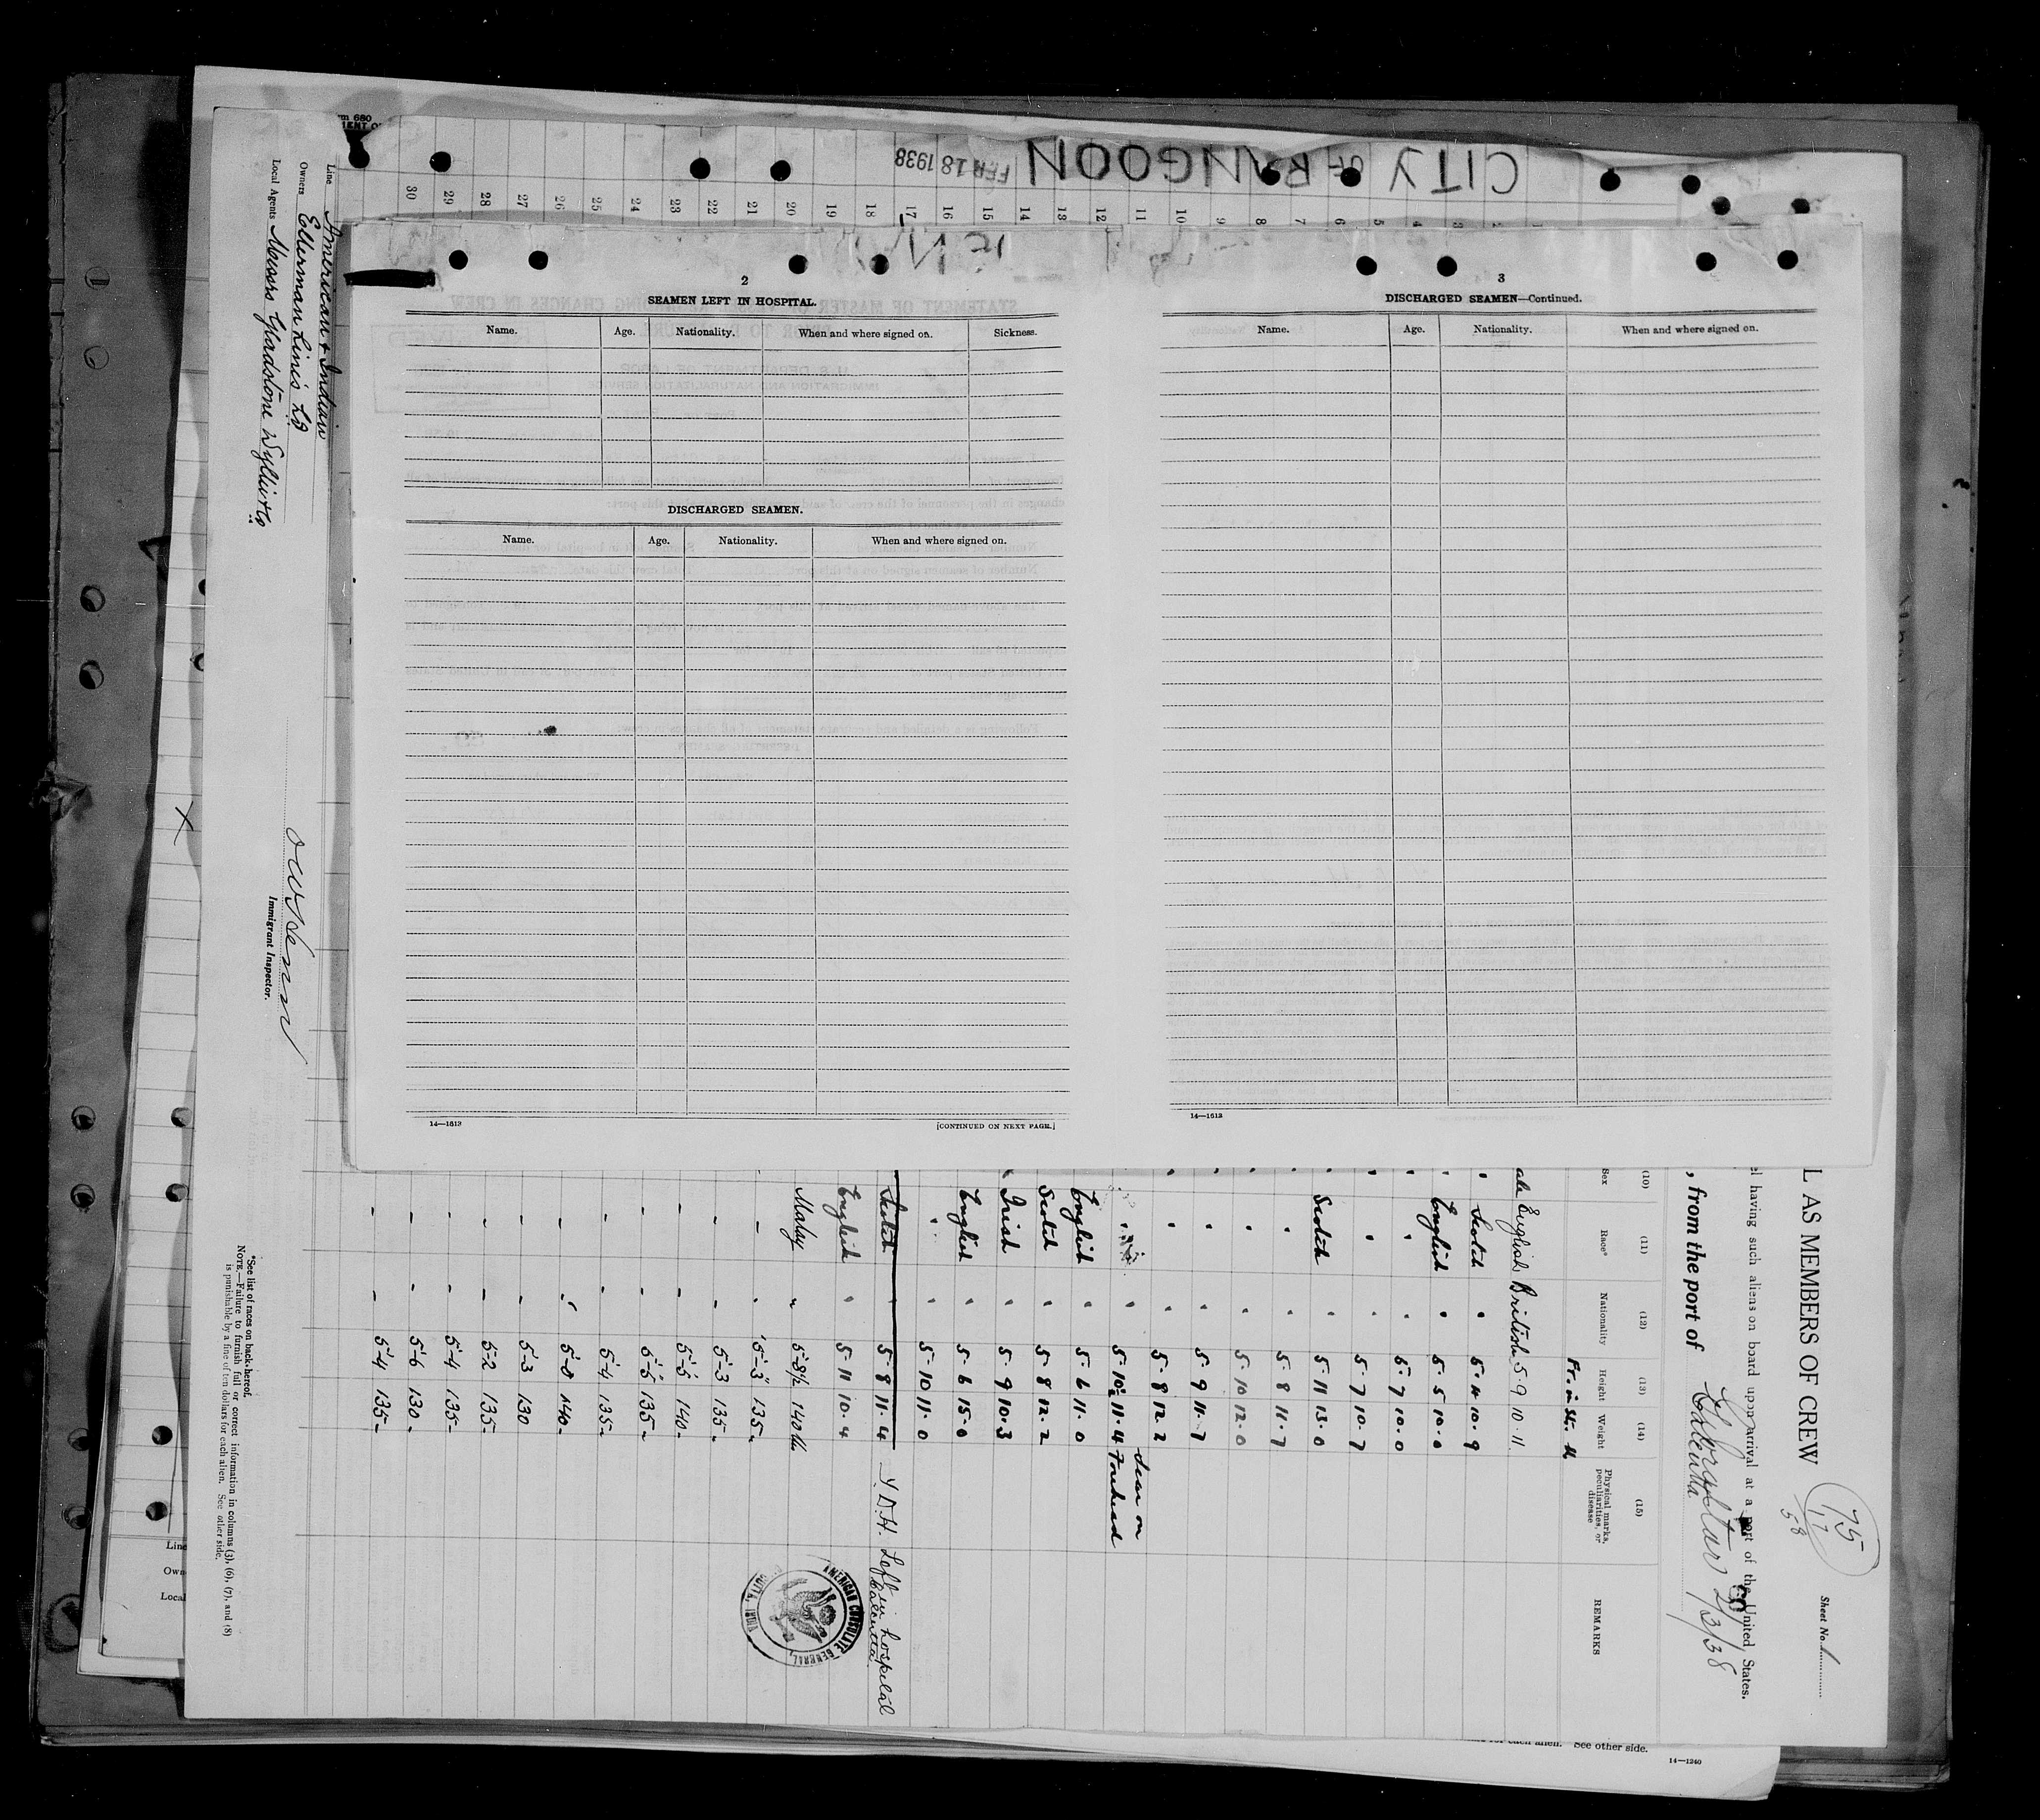 CITY OF RANGOON
FEB 18 1938
30 29 28 27 26 25 24 23 22 21 20 19 18 17 16 15 14 13 12 11 10 9 8 7 6 5 4 3 2
2
SEAMEN LEFT IN HOSPITAL.
Name. Age. Nationality. When and where signed on. Sickness.
DISCHARGED SEAMEN.
Name. Age. Nationality. When and where signed on.
14—1613
[CONTINUED ON NEXT PAGE.]
3
DISCHARGED SEAMEN—Continued.
Name. Age. Nationality. When and where signed on.
14—1613
L AS MEMBERS OF CREW
75
17
58
Sheet No. 1
el having such aliens on board upon arrival at a port of the United States.
, from the port of Calcutta 2/3/38
(10) (11) (12) (13) (14) (15)
Sex Race* Nationality Height Weight Physical marks, peculiarities, or disease REMARKS
Ft. in St. lb
ale English British 5·9 10·11
" Scotch " 5·10 10·9
" English " 5·5 10·0
" " " 5·7 10·0
" " " 5·7 10·7
" Scotch " 5·11 13·0
" " " 5·8 11·7
" " " 5·10 12·0
" " " 5·9 11·7
" " " 5·8 12·2
" " 5·10½ 11·4 Scar on Forehead
English " 5·6 11·0
Scotch " 5·8 12·2
Irish " 5·9 10·3
English " 5·6 15·0
" " 5·10 11·0
Scotch " 5·8 11·4 Left in hospital Calcutta
English " 5·11 10·4
Malay " 5'-8½ 140 lbs
- " 5'-3" 135-
- - 5'-3 135-
- - 5'-5 140-
- - 5'-5 135-
- - 5'-4 135-
- - 5'-0 140-
- - 5'-3 130
- - 5'-2 135-
- - 5'-4 135-
- - 5'-6 130-
- - 5'-4 135-
AMERICAN CONSULATE GENERAL, CALCUTTA, INDIA
Line American & Indian
Owners Ellerman Lines Ld
Local Agents Messrs Gladstone Wyllie & Co
Immigrant Inspector.
*See list of races on back hereof.
NOTE.—Failure to furnish full or correct information in columns (3), (6), (7), and (8)
is punishable by a fine of ten dollars for each alien. See other side.
Line
Own
Local
for each alien. See other side.
14—1240